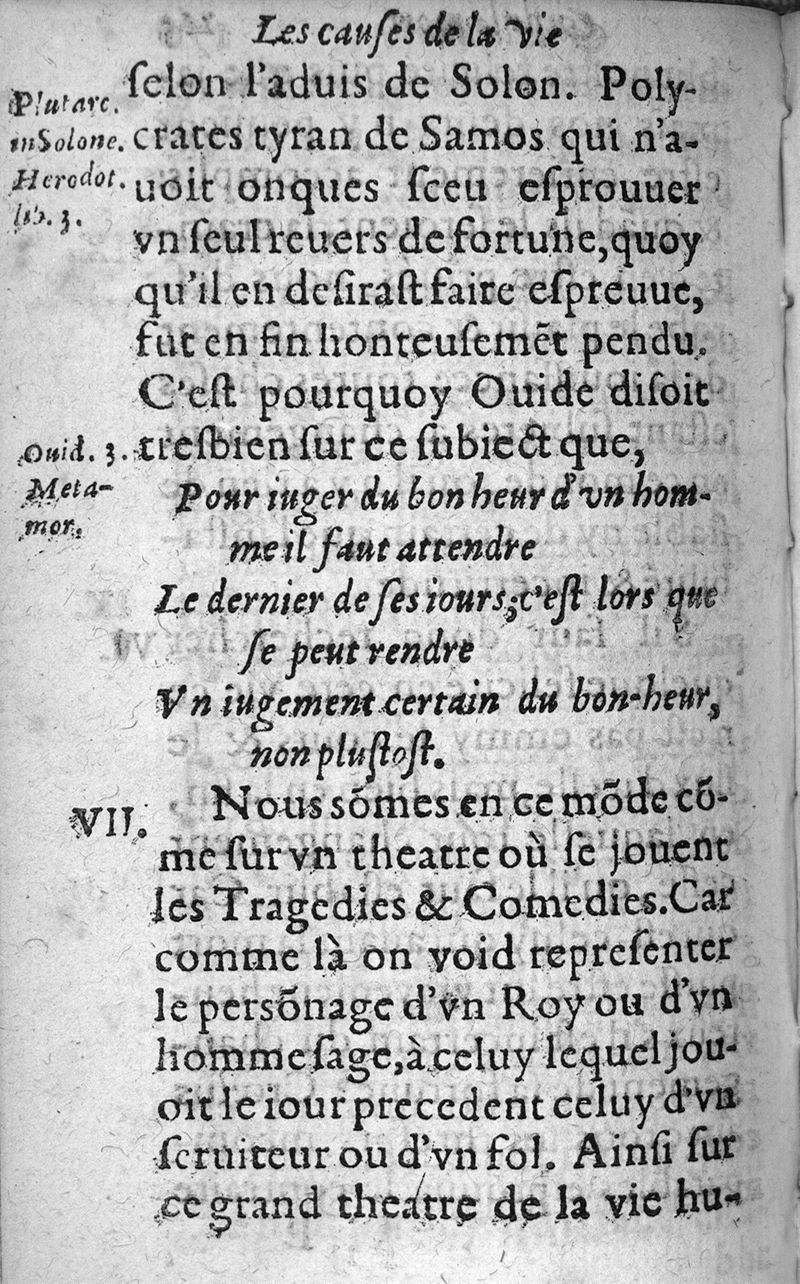 Les cauſes de la vie
ſelon l'aduis de Solon. Poly-
Plutarc.
in Solone.
Herodot.
lib. 3.
crates tyran de Samos qui n'a-
uoit onques ſceu eſprouuer
vn ſeul reuers de fortune, quoy
qu'il en deſiraſt faire eſpreuue,
fut en fin honteuſemēt pendu.
C'eſt pourquoy Ouide diſoit
tresbien ſur ce ſubiect que,
Ouid. 3.
Meta-
mor.
Pour iuger du bon heur d'vn hom-
me il faut attendre
Le dernier de ſes iours, c'eſt lors que
ſe peut rendre
Vn iugement certain du bon-heur,
non pluſtoſt.
VII.
Nous sōmes en ce mōde cō-
me ſur vn theatre où ſe jouent
les Tragedies & Comedies. Car
comme là on void repreſenter
le persōnage d'vn Roy ou d'vn
homme ſage, à celuy lequel jou-
oit le iour precedent celuy d'vn
ſeruiteur ou d'vn fol. Ainſi ſur
ce grand theatre de la vie hu-